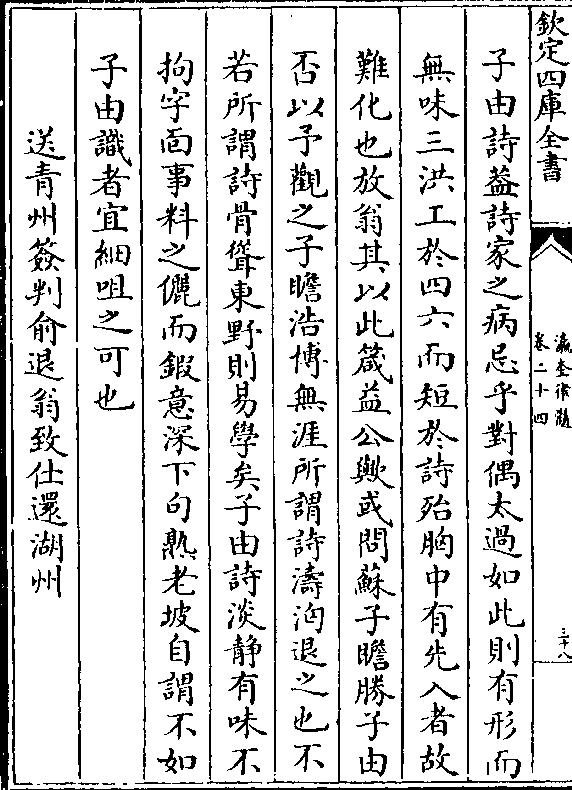 欽定四庫全書
瀛奎律髓
卷二十四
三十八
子由詩葢詩家之病忌乎對偶太過如此則有形而
無味三洪工於四六而短於詩殆胸中有先入者故
難化也放翁其以此箴益公歟或問蘇子瞻勝子由
否以予觀之子瞻浩博無涯所謂詩濤洶退之也不
若所謂詩骨聳東野則易學矣子由詩淡静有味不
拘字面事料之儷而鍜意深下句熟老坡自謂不如
子由識者宜細咀之可也
送青州簽判俞退翁致仕還湖州